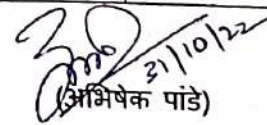 31/10/22
(अभिषेक पांडे)